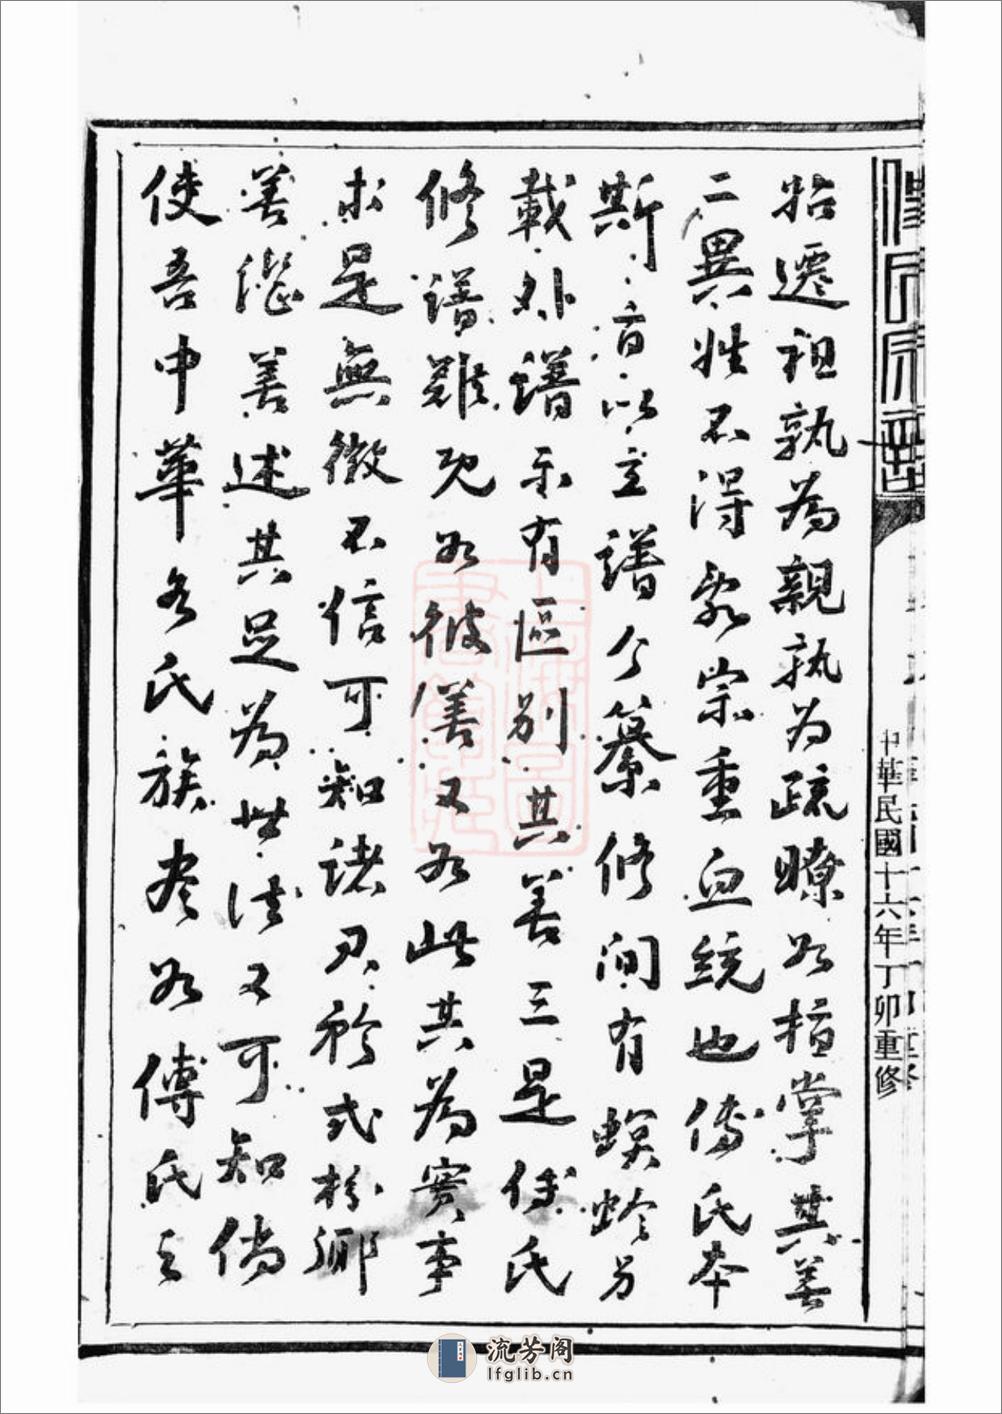 始遷祖孰為親孰為疏瞭如指掌其善
二異姓不得亂宗重血統也傅氏本
斯音以立譜今纂修間有螟蛉另
載外譜示有區別其善三是傅氏
修譜難既如彼善又如此其為實事
求是無徵不信可知諸君矜式枌鄉
善繼善述其足為世法又可知倘
使吾中華各氏族盡如傅氏之
中華民國十六年丁卯重修
流芳阁
lfglib.cn